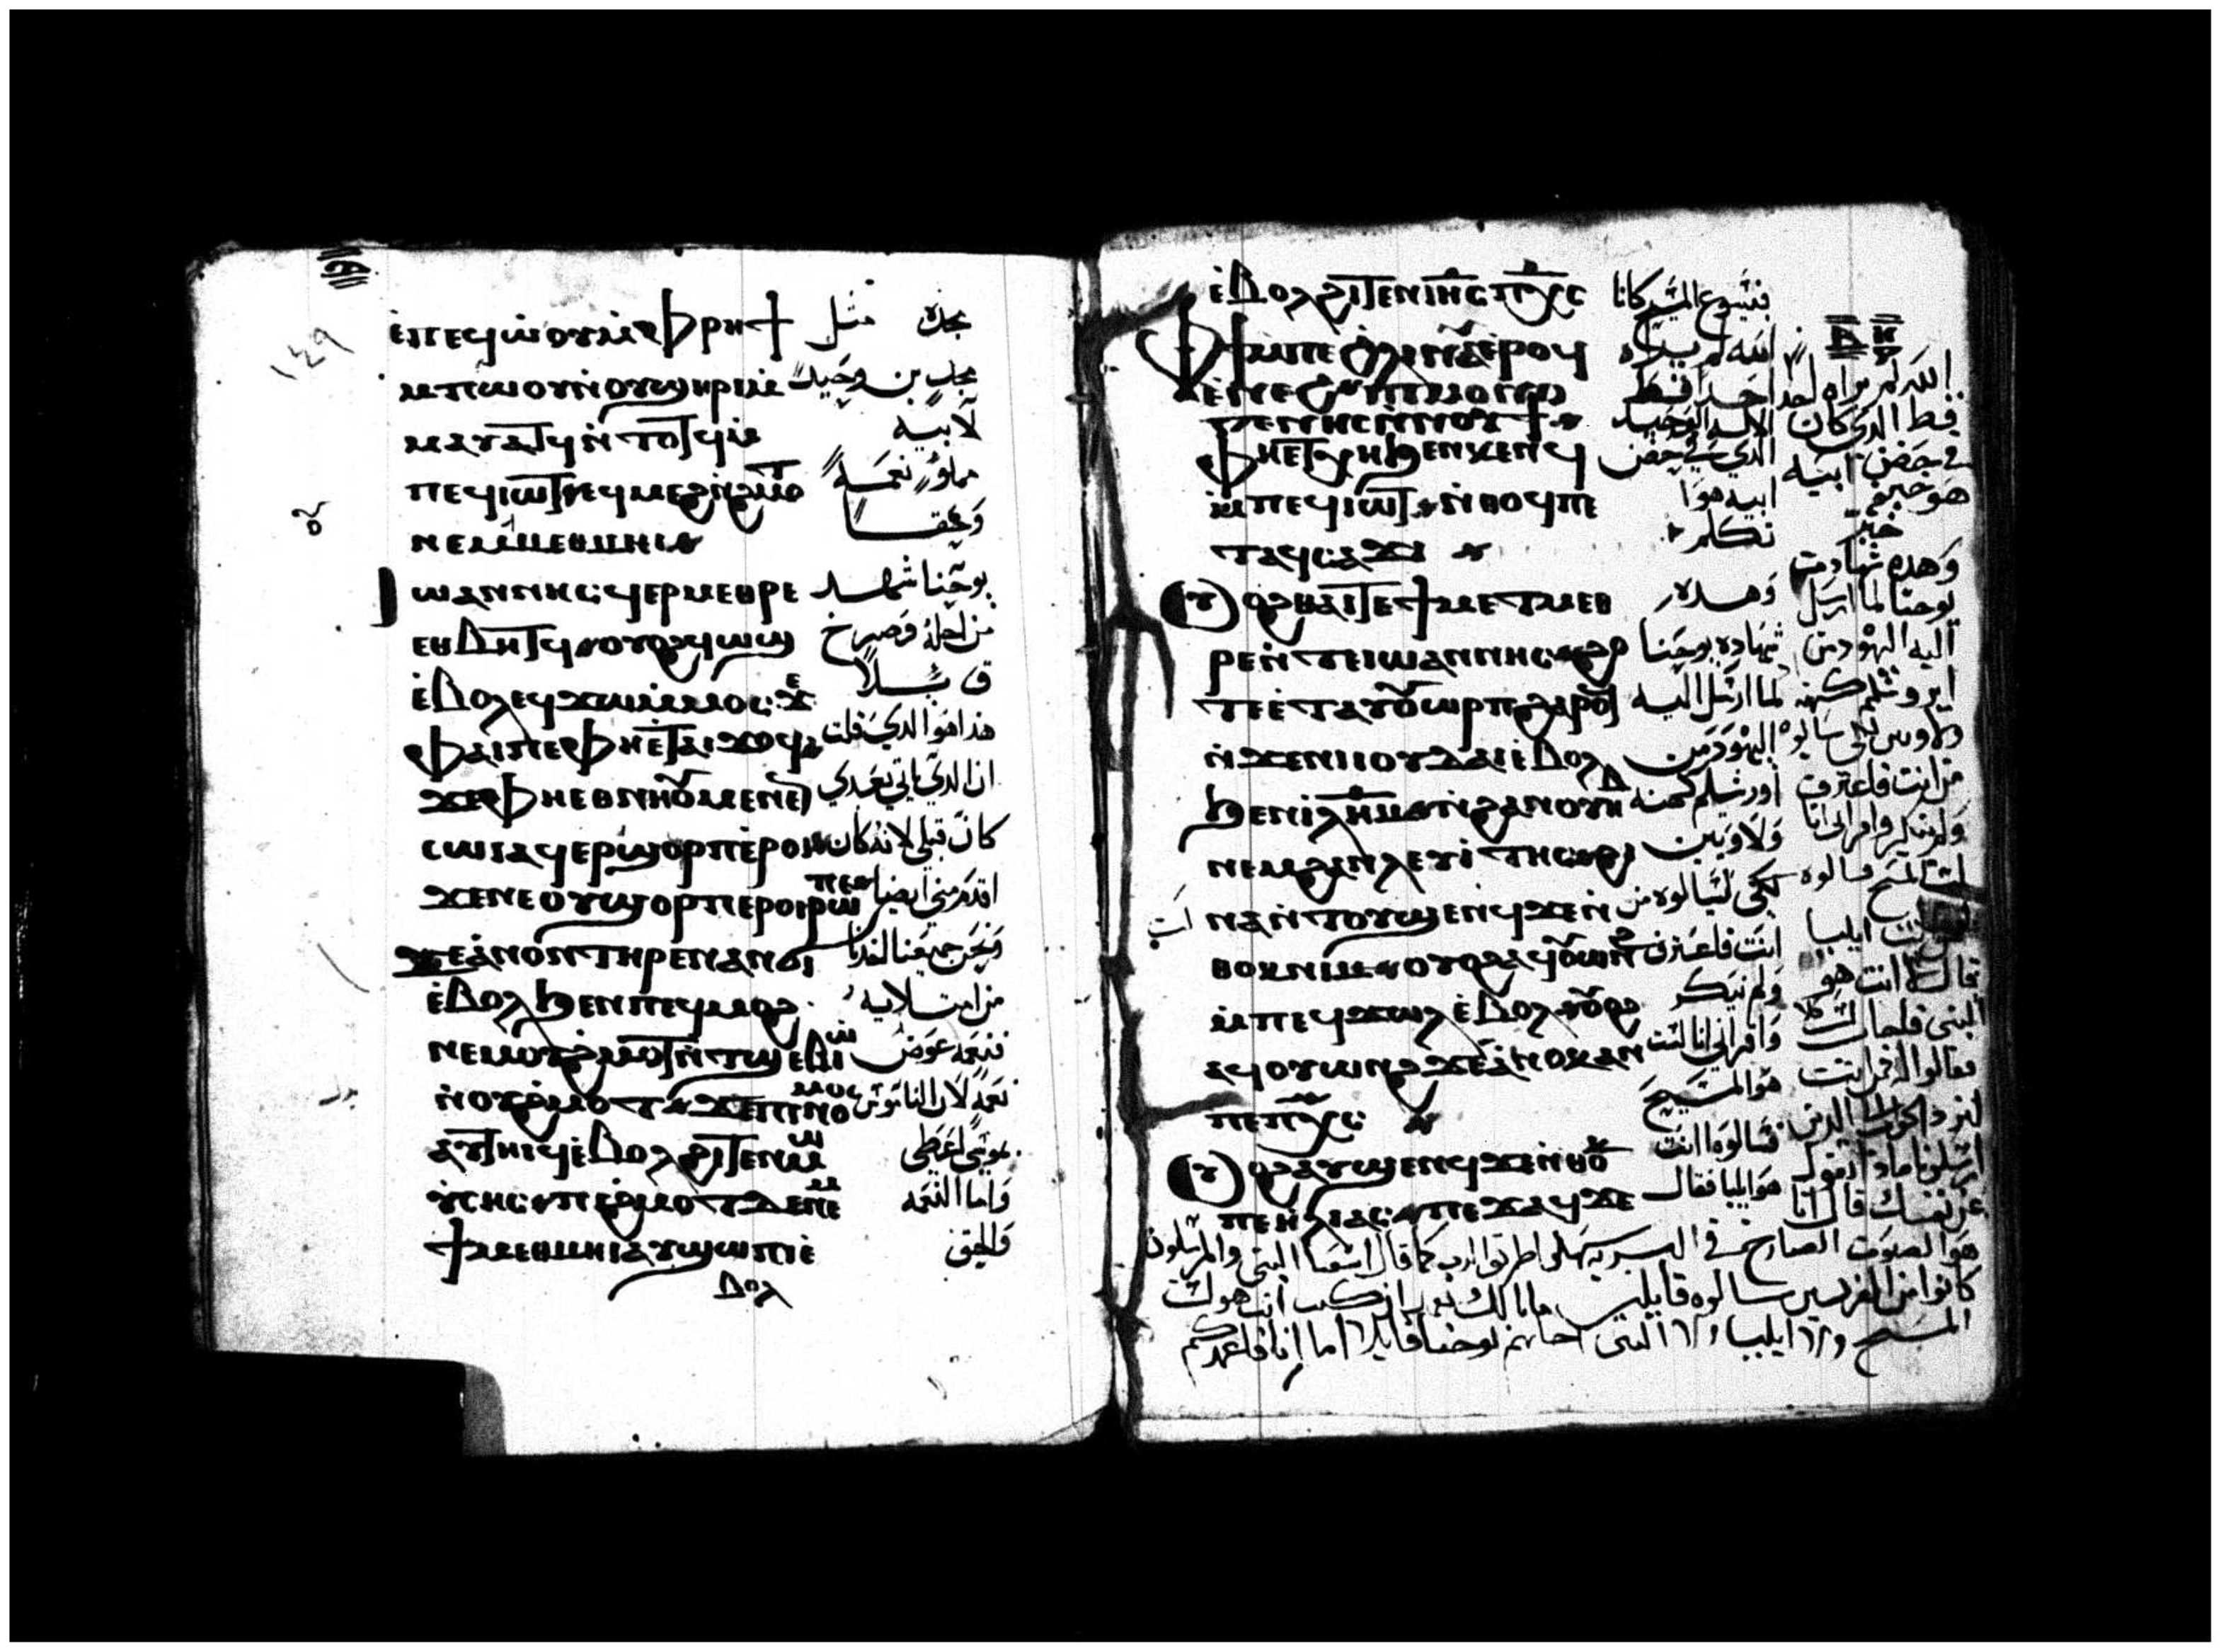 ⲉ̀ⲡⲉϥⲱ̀ⲟⲩⲙ̀ⲫⲣⲏϯ مجده مثل
ⲙⲡⲱⲟⲩⲛ̀ⲟⲩϣⲏⲣⲓⲙ̀ مجد بن وحيد
ⲙⲁⲩⲁⲧϥⲛ̀ⲧⲟⲧϥⲙ̀ لابيه
ⲡⲉϥⲓⲱⲧⲉϥⲙⲉϩⲛ̀ϩⲙⲟⲧ مملؤ نعمة
ⲛⲉⲙⲙⲉⲑⲙⲏⲓ وحقا
ⲓⲱⲁⲛⲛⲏⲥϥⲉⲣⲙⲉⲑⲣⲉ يوحنا شهد
ⲉⲑⲃⲏⲧϥⲟⲩⲟϩϥⲱϣ من اجله وصرخ
ⲉ̀ⲃⲟⲗⲉϥϫⲱⲙ̀ⲙⲟⲥϫⲉ قايلا
ⲫⲁⲓⲡⲉⲫⲏⲉ̀ⲧⲁⲓϫⲟϥ هذا هو الذي قلت
ϫⲉⲫⲏⲉⲑⲛⲏⲟⲩⲙⲉⲛⲉⲛ ان الذي ياتي بعدي
ⲥⲱⲓⲁϥⲉⲣϣⲟⲣⲡⲉ̀ⲣⲟⲓ كان قبلي لانه كان
ϫⲉⲛⲉⲟⲩϣⲟⲣⲡⲉⲣⲟⲓⲣⲱⲡⲉ اقدم مني ايضا
ϫⲉⲁ̀ⲛⲟⲛⲧⲏⲣⲉⲛⲁⲛϭⲓ ونحن جميعنا اخذنا
ⲉ̀ⲃⲟⲗϧⲉⲛⲡⲉϥⲙⲟϩ من امتلايه
ⲛⲉⲙⲟⲩϩ̀ⲙⲟⲧⲛ̀ⲧϣⲉⲃⲓⲱ نعمه عوض
ⲛ̀ⲟⲩϩ̀ⲙⲟⲧϫⲉⲡⲓⲛⲟⲙⲟⲥ نعمة لان الناموس
ⲁⲩⲧⲏⲓϥⲉ̀ⲃⲟⲗϩⲓⲧⲉⲛⲙⲱ بموسى اعطي
ⲩ̀ⲥⲏⲥⲡⲓϩ̀ⲙⲟⲧⲇⲉⲛⲉⲙ واما النعمه
ϯⲙⲉⲑⲙⲏⲓⲁⲩϣⲱⲡⲓⲉ̀ والحق
ⲃⲟⲗ
ⲉ̀ⲃⲟⲗϩⲓⲧⲉⲛⲓⲏⲥⲡⲭⲥ فبيسوع المسيح كانا
ⲫϯⲙⲡⲉϩⲗⲓⲛⲁⲩⲉ̀ⲣⲟϥ الله لم يراه
ⲉ̀ⲛⲉϩⲡⲓⲙⲟⲛⲟ احد قط
ⲅⲉⲛⲏⲥⲛ̀ⲛⲟⲩϯ الاله الوحيد
ⲫⲏⲉⲧⲭⲏϧⲉⲛⲕⲉⲛϥ الذي في حضن
ⲙ̀ⲡⲉϥⲓⲱⲧⲛ̀ⲑⲟϥⲡⲉ ابيه هوا
ⲧⲁϥⲥⲁϫⲓ تكلم
ⲟⲩⲟϩⲑⲁⲓⲧⲉϯⲙⲉⲧⲙⲉⲑ وهذه
ⲣⲉⲛ̀ⲧⲉⲓⲱⲁⲛⲛⲏⲥϩⲟ شهاده يوحنا
ⲧⲉⲉ̀ⲧⲁⲩⲟⲩⲱⲣⲡϩⲁⲣⲟϥ لما ارسل اليه
ⲛ̀ϫⲉⲛⲓⲓⲟⲩⲇⲁⲓⲉ̀ⲃⲟⲗ اليهود من
ϧⲉⲛⲓⲗⲏⲙⲛ̀ϩⲁⲛⲟⲩⲏⲃ اورشليم كهنه
ⲛⲉⲙϩⲁⲛⲗⲉⲩⲓ̀ⲧⲏⲥϩⲓ ولاويين
ⲛⲁⲛ̀ⲧⲟⲩϣⲉⲛϥϫⲉⲛ̀ لكي يسالوه من
ⲑⲟⲕⲛⲓⲙⲟⲩⲟϩⲁϥⲟⲩⲱⲛϩ انت فاعترف
ⲙ̀ⲡⲉϥϫⲱⲗⲉ̀ⲃⲟⲗⲟⲩⲟϩ ولم ينكر
ⲁϥⲟⲩⲱⲛϩϫⲉⲁ̀ⲛⲟⲕⲁⲛ واقر اني انا لست
ⲡⲉⲡⲭⲥ هو المسيح
ⲟⲩⲟϩⲁⲩϣⲉⲛϥϫⲉⲛⲑⲟⲕ فسالوه انت
ⲡⲉⲏⲗⲓⲁⲥⲡⲉϫⲁϥϫⲉ هو ايليا فقال
الله لم يراه احد
قط الذي كان
في حضن ابيه
هو خبر
خبر
وهذه شهادت
يوحنا لما ارسل
اليه اليهود من
ايروشليم كهنه
ولاويين لكي يسالوه
من انت فاعترف
ولم ينكر واقر اني انا
لست المسيح فسالوه
انت ايليا
قال لا انت هو
النبي فاجاب لا
فقالوا له فمن انت
لنرد الجواب للذين
ارسلونا ماذا تقول
عن نفسك قال انا
هو الصوت الصارخ في البريه سهلوا طريق الرب كما قال اشعيا النبي والمرسلون
كانوا من الفريسين سالوه قايلين ما بالك تعمد ان كنت انت هو لست
المسيح ولا ايليا ولا النبي اجابهم يوحنا قايلا اما انا فاعمدكم